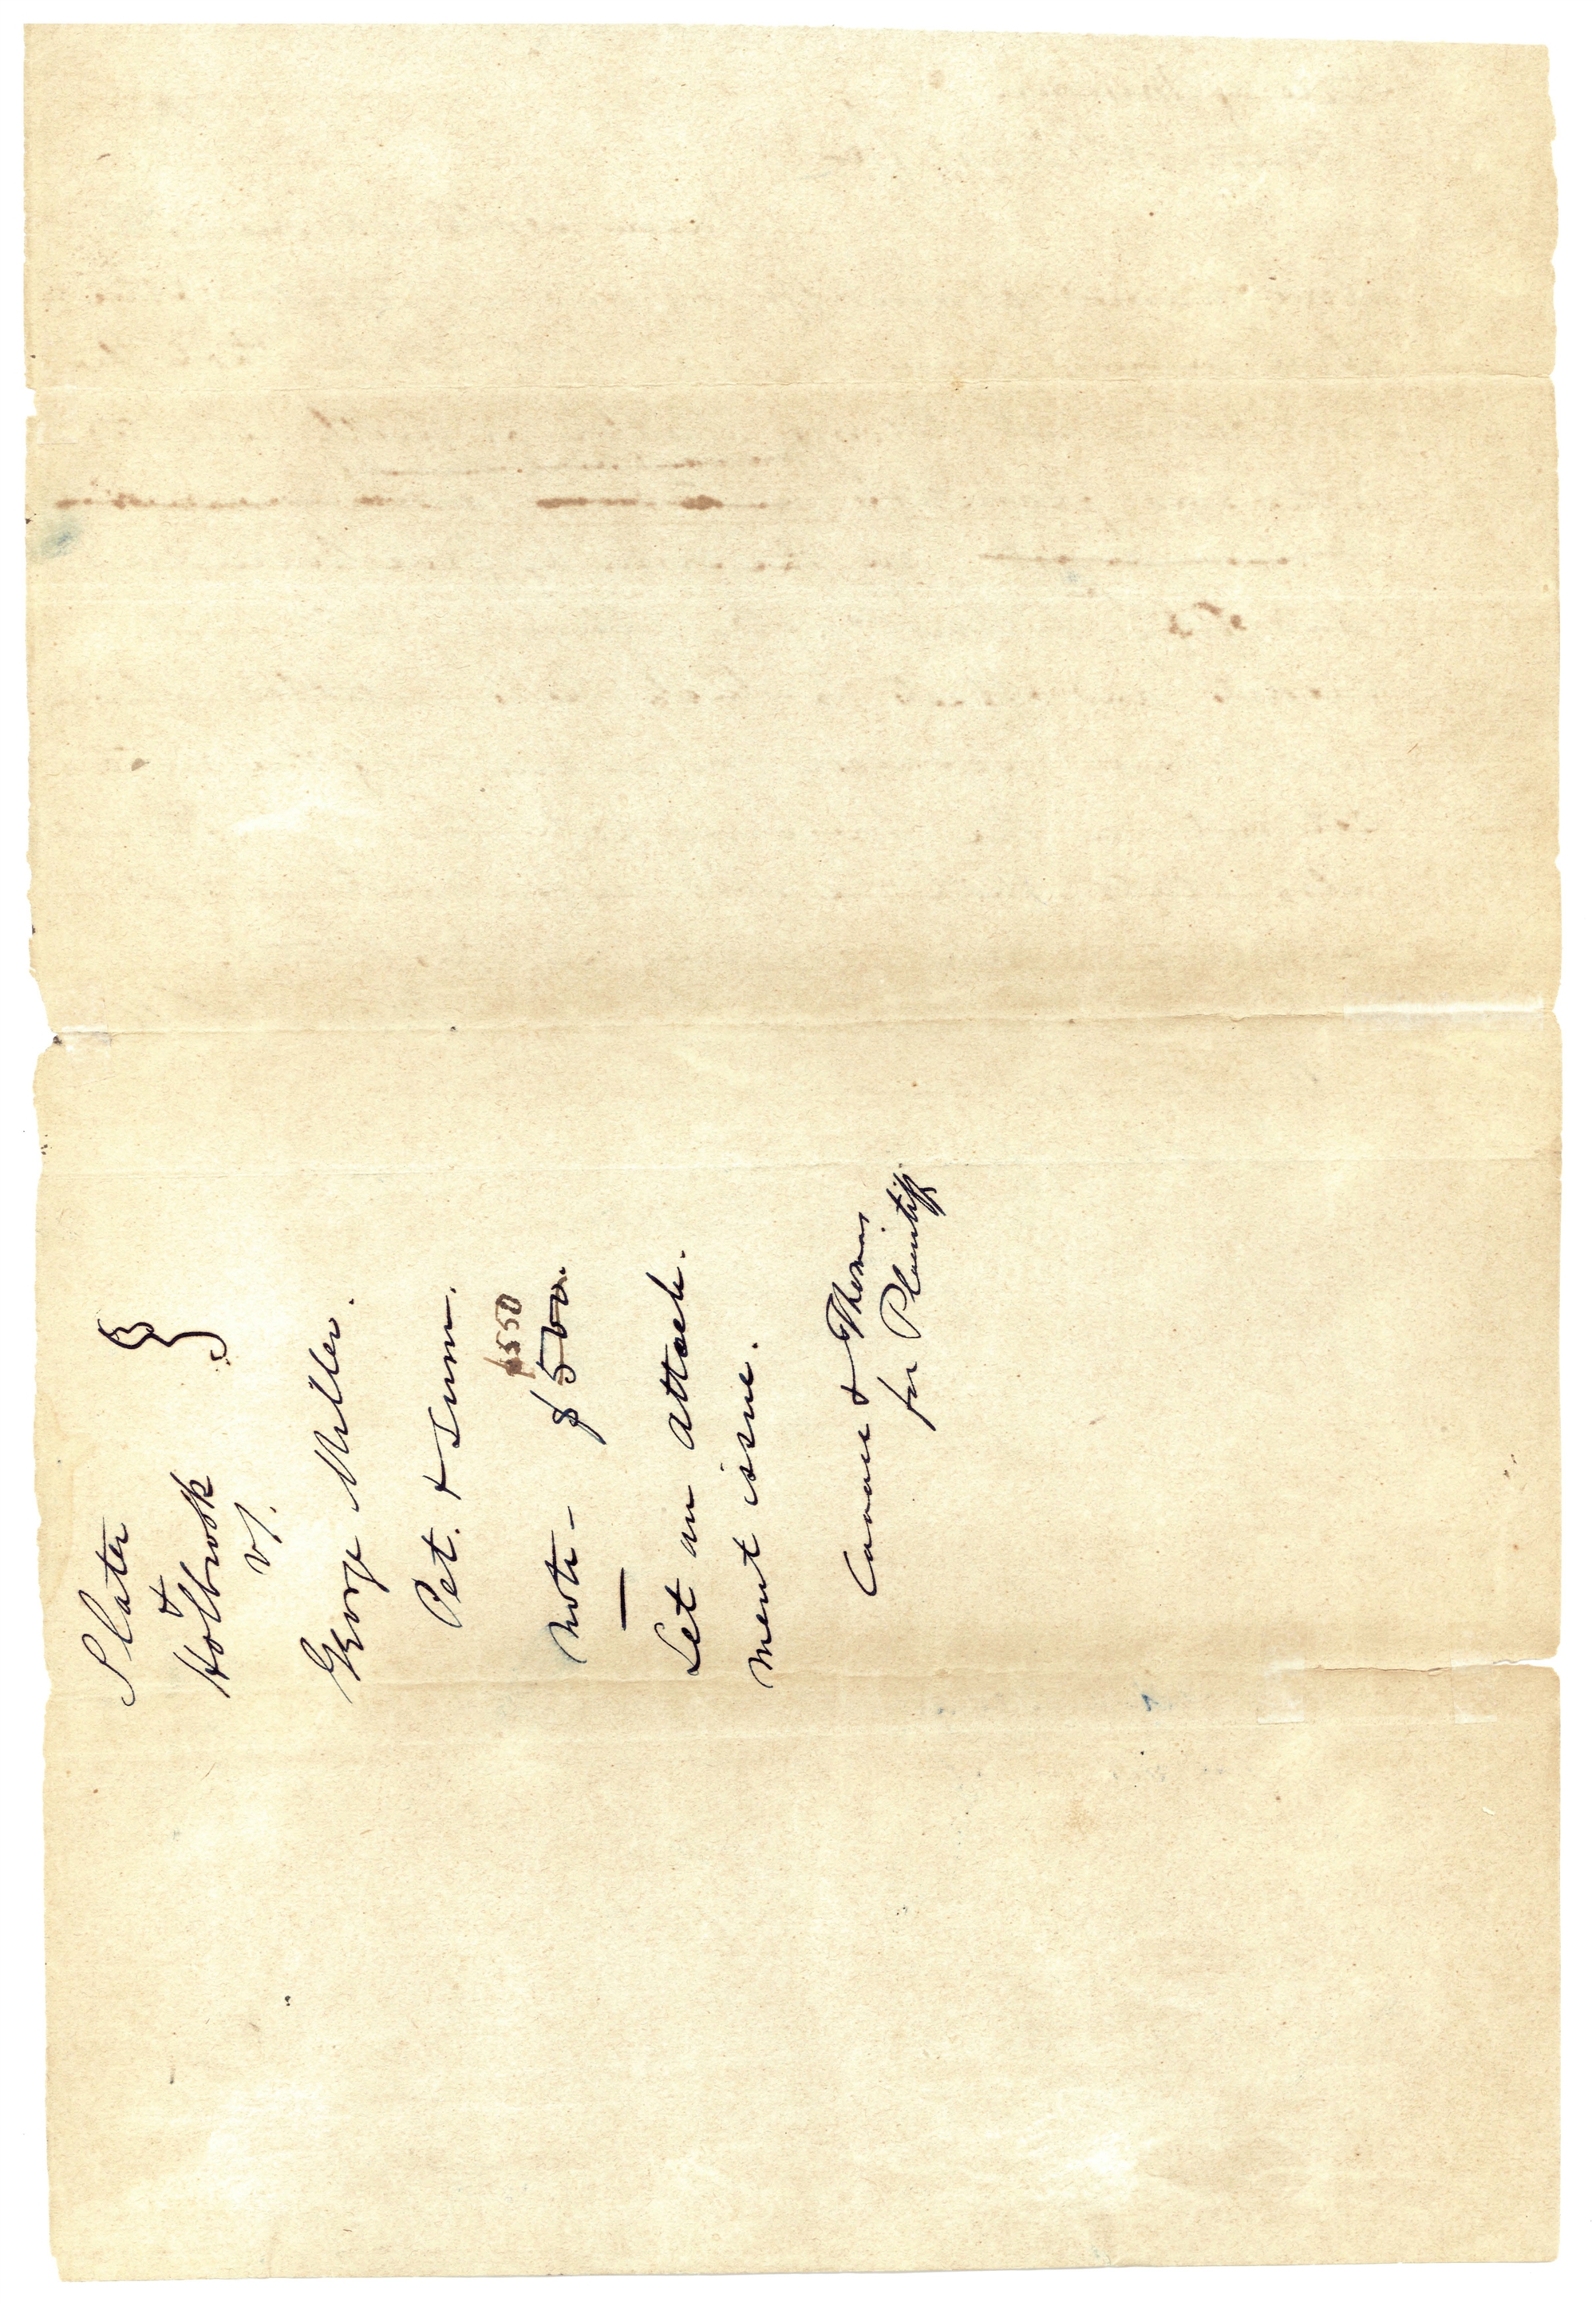 Slater
&
Holbrook
vs.
George Miller.
Pet. & Sum.
$550
note - $500.
Let an attach-
ment issue.
& Thomas
for Plaintiff